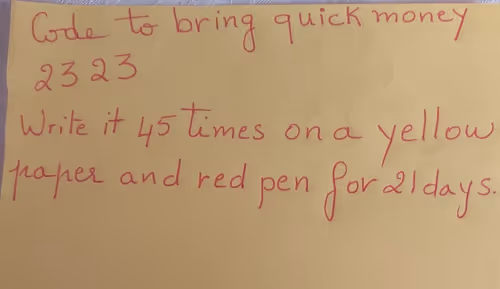 Code to bring quick money
2323
Write it 45 times on a yellow
paper and red pen for 21 days.